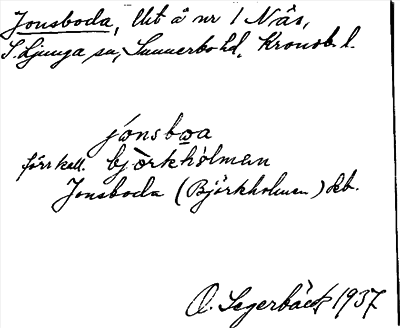 Jonsboda, Utt å nr 1 Näs,
S. Ljunga sn, Sunnerbo hd, Kronob. l.
jónsbωa
förr kall. bjòrkhòlman
Jonsboda (Björkholmen) deb.
O. Segerbäck 1937